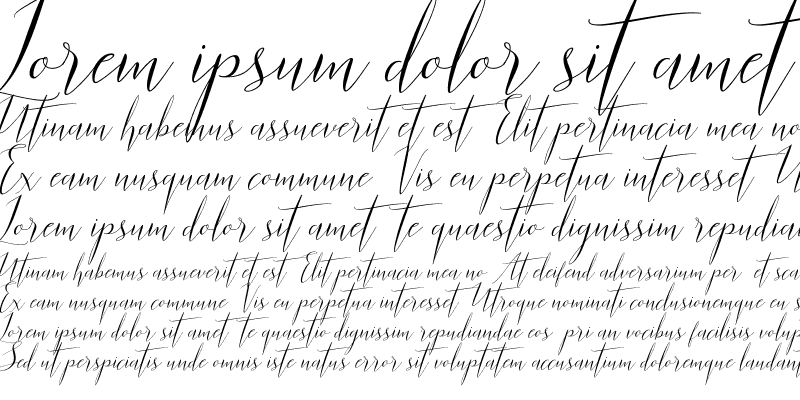 Lorem ipsum dolor sit amet
Utinam habemus assueverit et est Elit pertinacia mea no
Ex eam nusquam commune Vis eu perpetua interesset
Lorem ipsum dolor sit amet te quaestio dignissim repudian
Utinam habemus assueverit et est Elit pertinacia mea no At eleifend adversarium per et scae
Ex eam nusquam commune Vis eu perpetua interesset Utroque nominati conclusionemque eu s
Lorem ipsum dolor sit amet te quaestio dignissim repudiandae eos pri an vocibus facilisis volup
Sed ut perspiciatis unde omnis iste natus error sit voluptatem accusantium doloremque laudant